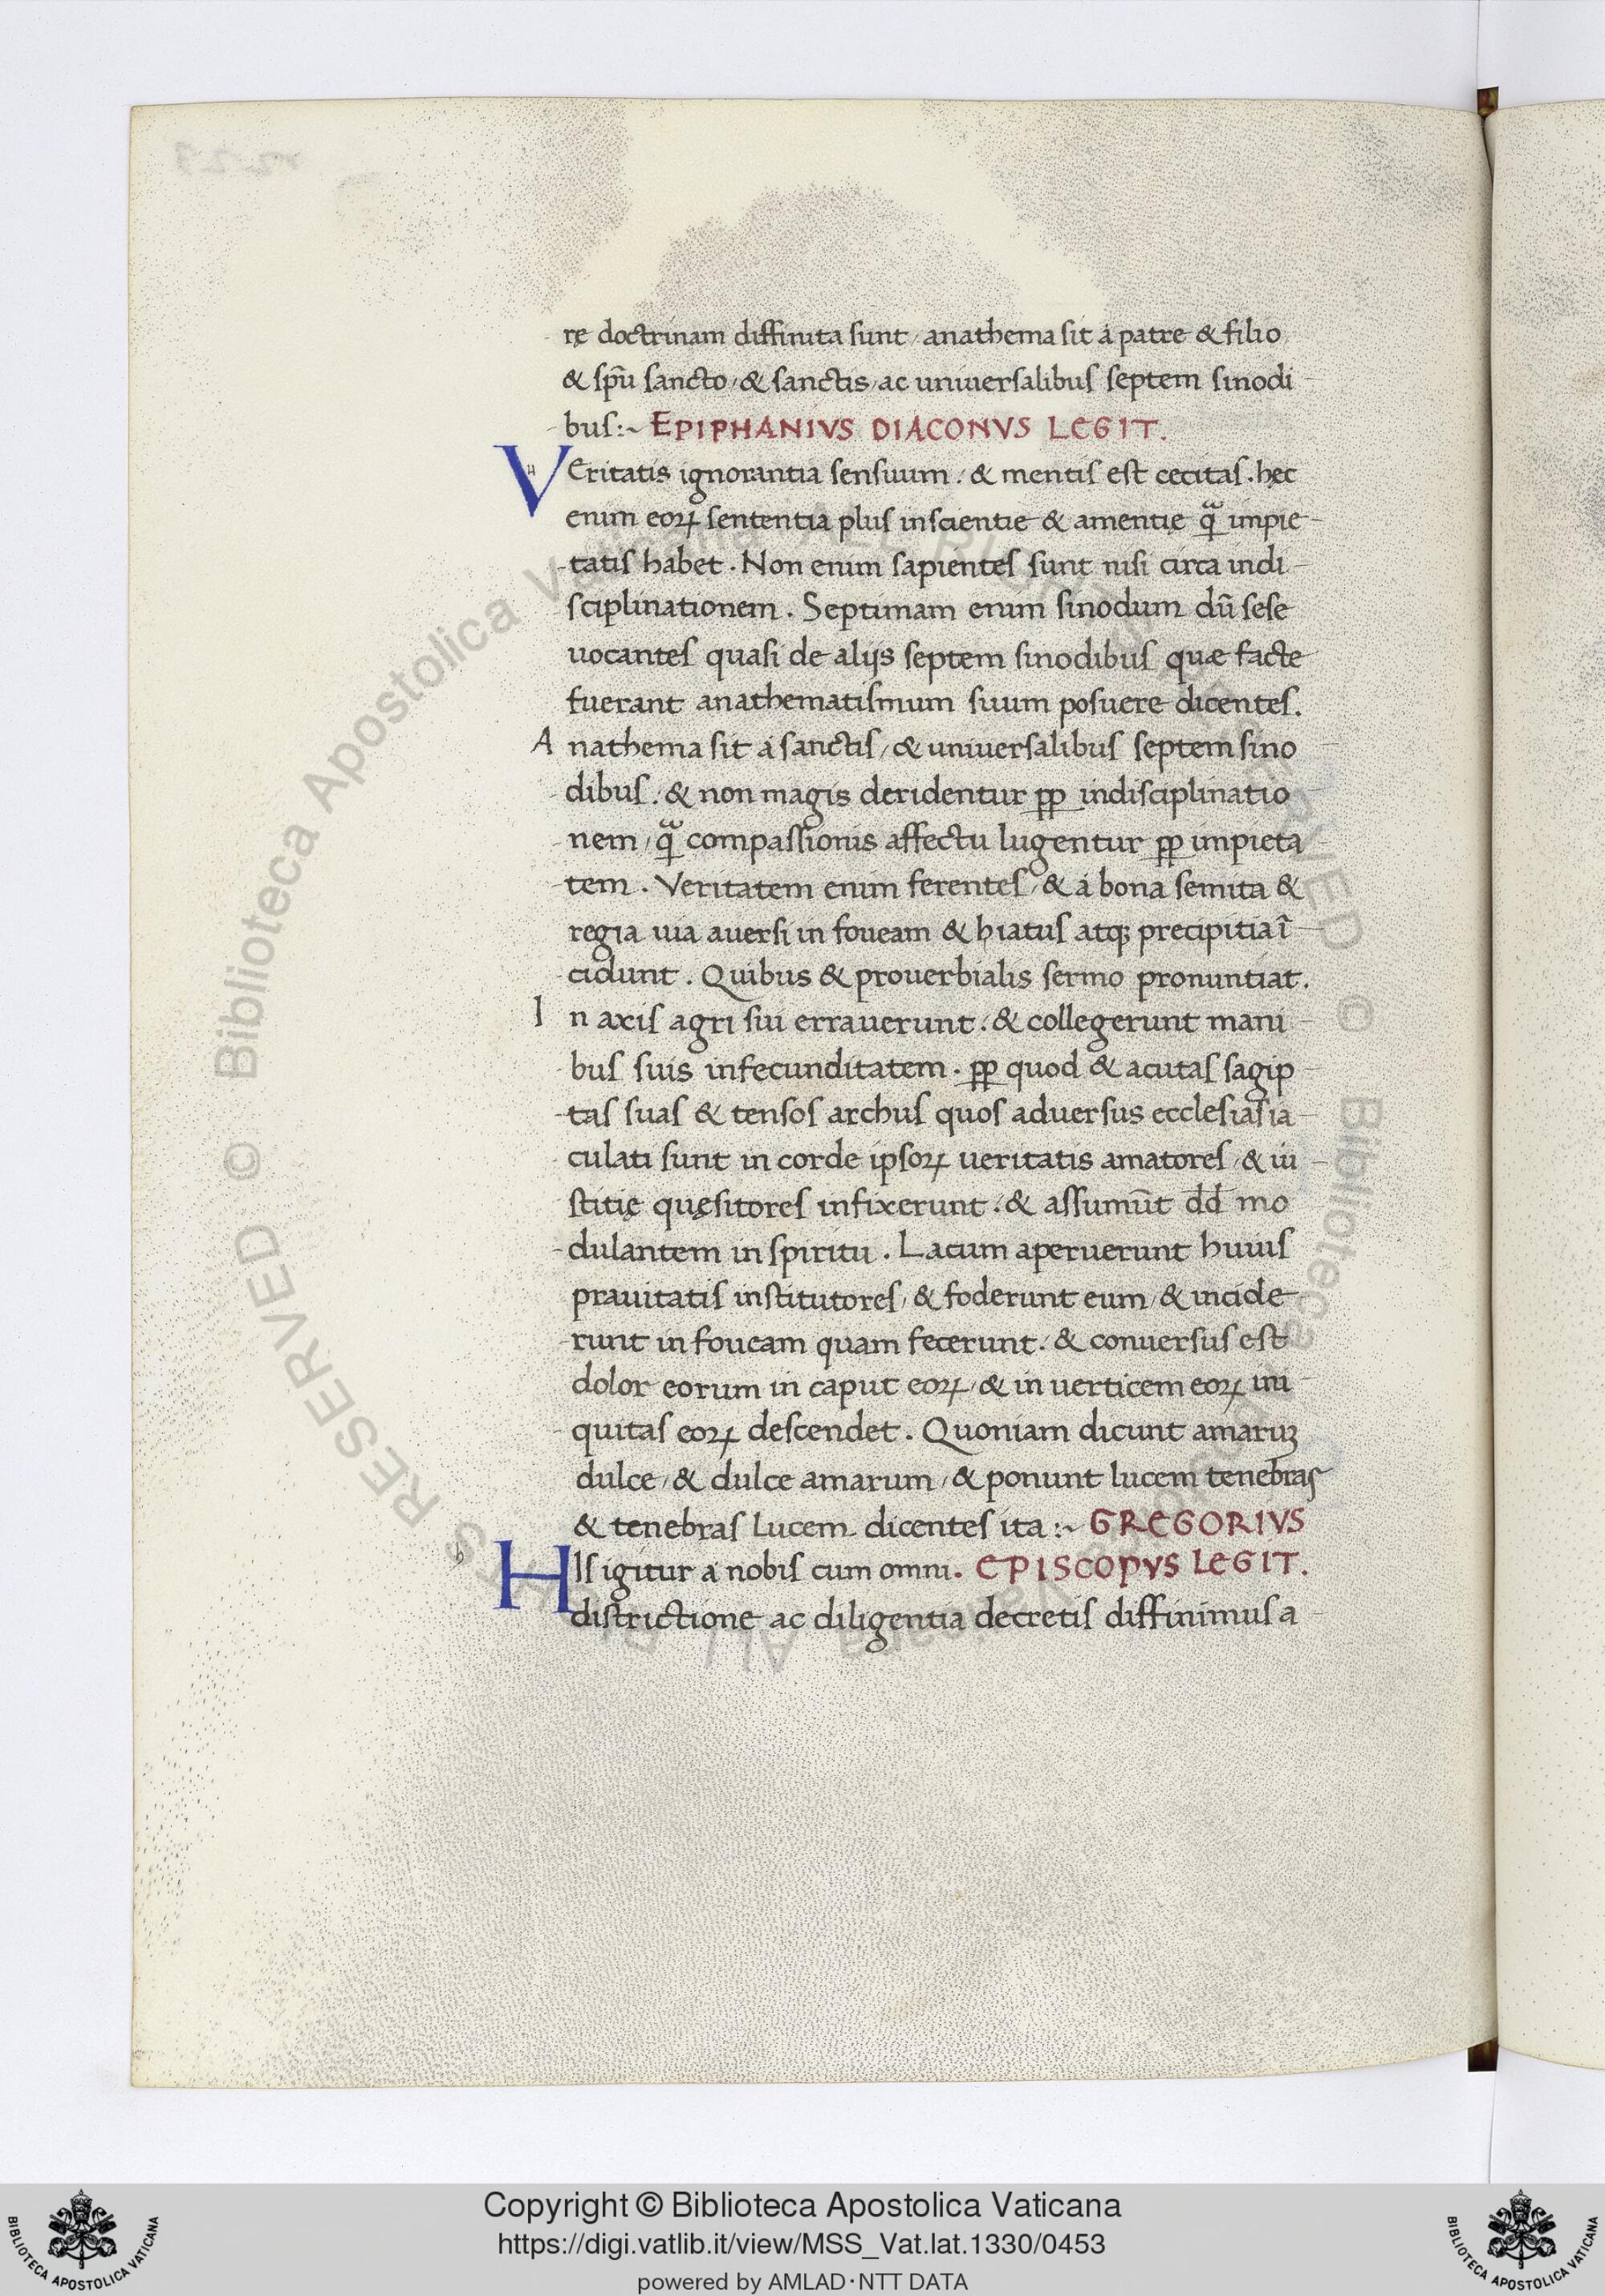 rę doctrinam diffinita sunt, anathema sit á patre & filio
& sp̄u sancto, & sanctis, ac uniuersalibus septem sinodi
bus:~ EPIPHANIVS DIACONVS LEGIT.
VEritatis ignorantia sensuum. & mentis est cecitas. hęc
enim eoꝝ sententia plus inscientie & amentię qᷓ impie
tatis habet. Non enim sapientes sunt nisi circa indi
sciplinationem. Septimam enim sinodum dū sese
uocantes quasi de alijs septem sinodibus quæ facte
fuerant anathematismum suum posuere dicentes.
A nathema sit á sanctis, & uniuersalibus septem sino
dibus. & non magis deridentur ꝓꝑ indisciplinatio
nem, qᷓ compassionis affectu lugentur ꝓꝑ impieta
tem. Veritatem enim ferentes, & á bona semita &
regia uia auersi in foueam & hiatus atq; precipitia ī
cidunt. Quibus & prouerbialis sermo pronuntiat.
I n axis agri sui errauerunt. & collegerunt mani
bus suis infecunditatem. ꝓꝑ quod & acutas sagip
tas suas & tensos archus quos aduersus ecclesias ia
culati sunt in corde ipsoꝝ ueritatis amatores, & iu
stitię quęsitores infixerunt. & assumūt dd̄ mo
dulantem in spiritu. Lacum aperuerunt huius
prauitatis institutores, & foderunt eum, & incide
runt in foueam quam fecerunt. & conuersus est
dolor eorum in caput eoꝝ, & in uerticem eoꝝ ini
quitas eoꝝ descendet. Quoniam dicunt amaruꝫ
dulce, & dulce amarum, & ponunt lucem tenebras
& tenebras lucem dicentes ita:~ GREGORIVS
HIs igitur á nobis cum omni. EPISCOPVS LEGIT.
districtione ac diligentia decretis diffinimus a
Copyright © Biblioteca Apostolica Vaticana
https://digi.vatlib.it/view/MSS_Vat.lat.1330/0453
powered by AMLAD·NTT DATA